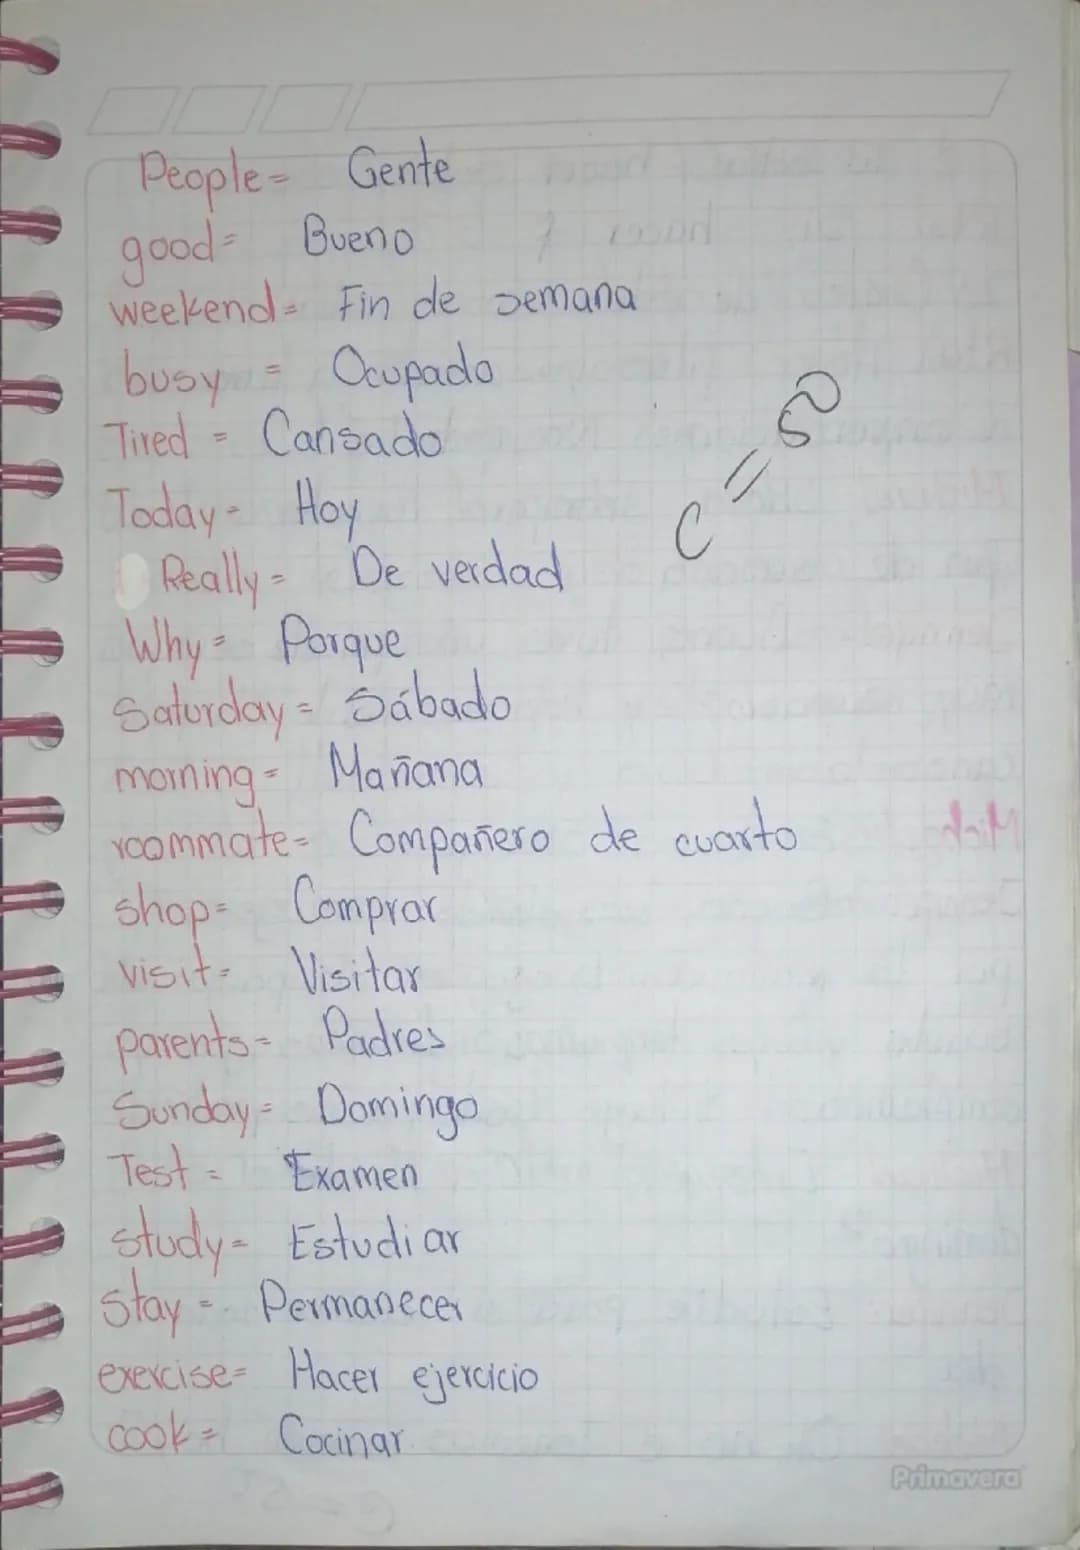 People= Gente
good= Bueno
weekend= Fin de semana
busy = Ocupado
Tired = Cansado
Today= Hoy
Really= De verdad
Why= Porque
Saturday= Sábado
morning= Mañana
roommate= Compañero de cuarto
shop= Comprar
visit= Visitar
parents= Padres
Sunday= Domingo
Test = Examen
study= Estudiar
stay= Permanecer
exercise= Hacer ejercicio
cook= Cocinar
Primavera